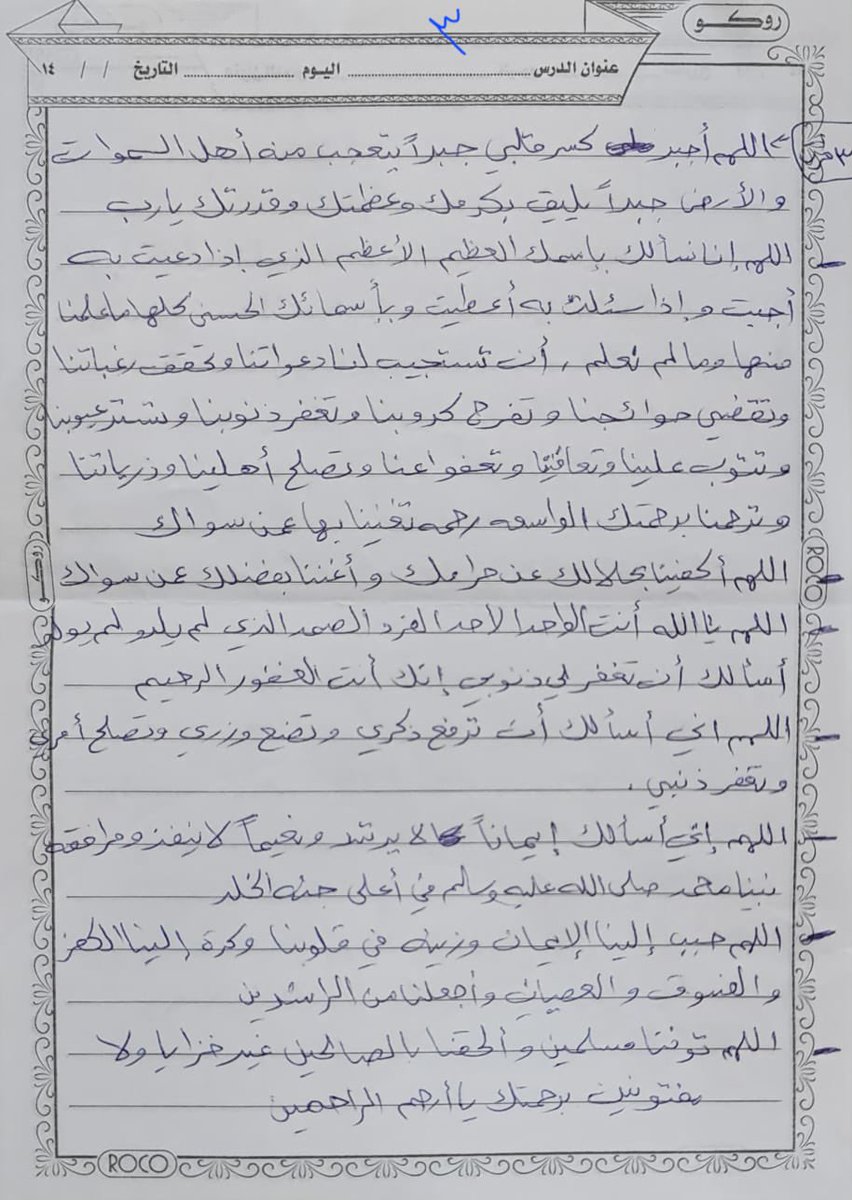 روكو
٣
عنوان الدرس ........ اليوم ........ التاريخ / / ١٤
اللهم أجبر كسر قلبي جبراً يتعجب منه أهل السموات
والأرض جبراً يليق بكرمك وعظمتك وقدرتك يارب
اللهم إنا نسألك بإسمك العظيم الأعظم الذي إذا دعيت به
أجبت وإذا سئلت به أعطيت وبأسمائك الحسنى كلها ما علمنا
منها وما لم نعلم، أن تستجيب لنا دعواتنا وتحقق رغباتنا
وتقضي حوائجنا وتفرج كروبنا وتغفر ذنوبنا وتستر عيوبنا
وتتوب علينا وتعافينا وتعفوا عنا وتصلح أهلينا وذرياتنا
وترحمنا برحمتك الواسعه رحمه تغنينا بها عن سواك
اللهم أكفينا بحلالك عن حرامك وأغننا بفضلك عن سواك
اللهم يا الله أنت الواحد الاحد الفرد الصمد الذي لم يلد ولم يولد
أسألك أن تغفر لي ذنوبي إنك أنت الغفور الرحيم
اللهم اني أسألك أن ترفع ذكري وتضع وزري وتصلح أمري
وتغفر ذنبي.
اللهم إني أسألك إيماناً لا يرتد ونعيماً لا ينفذ ومرافقه
نبينا محمد صلى الله عليه وسالم في أعلى جنه الخلد
اللهم حبب إلينا الإيمان وزينه في قلوبنا وكرة إلينا الكفر
والفسوق والعصيان وأجعلنا من الراشدين
اللهم توفنا مسلمين وألحقنا بالصالحين غير خزايا ولا
مفتونين برحمتك يا أرحم الراحمين
روكو
ROCO
ROCO